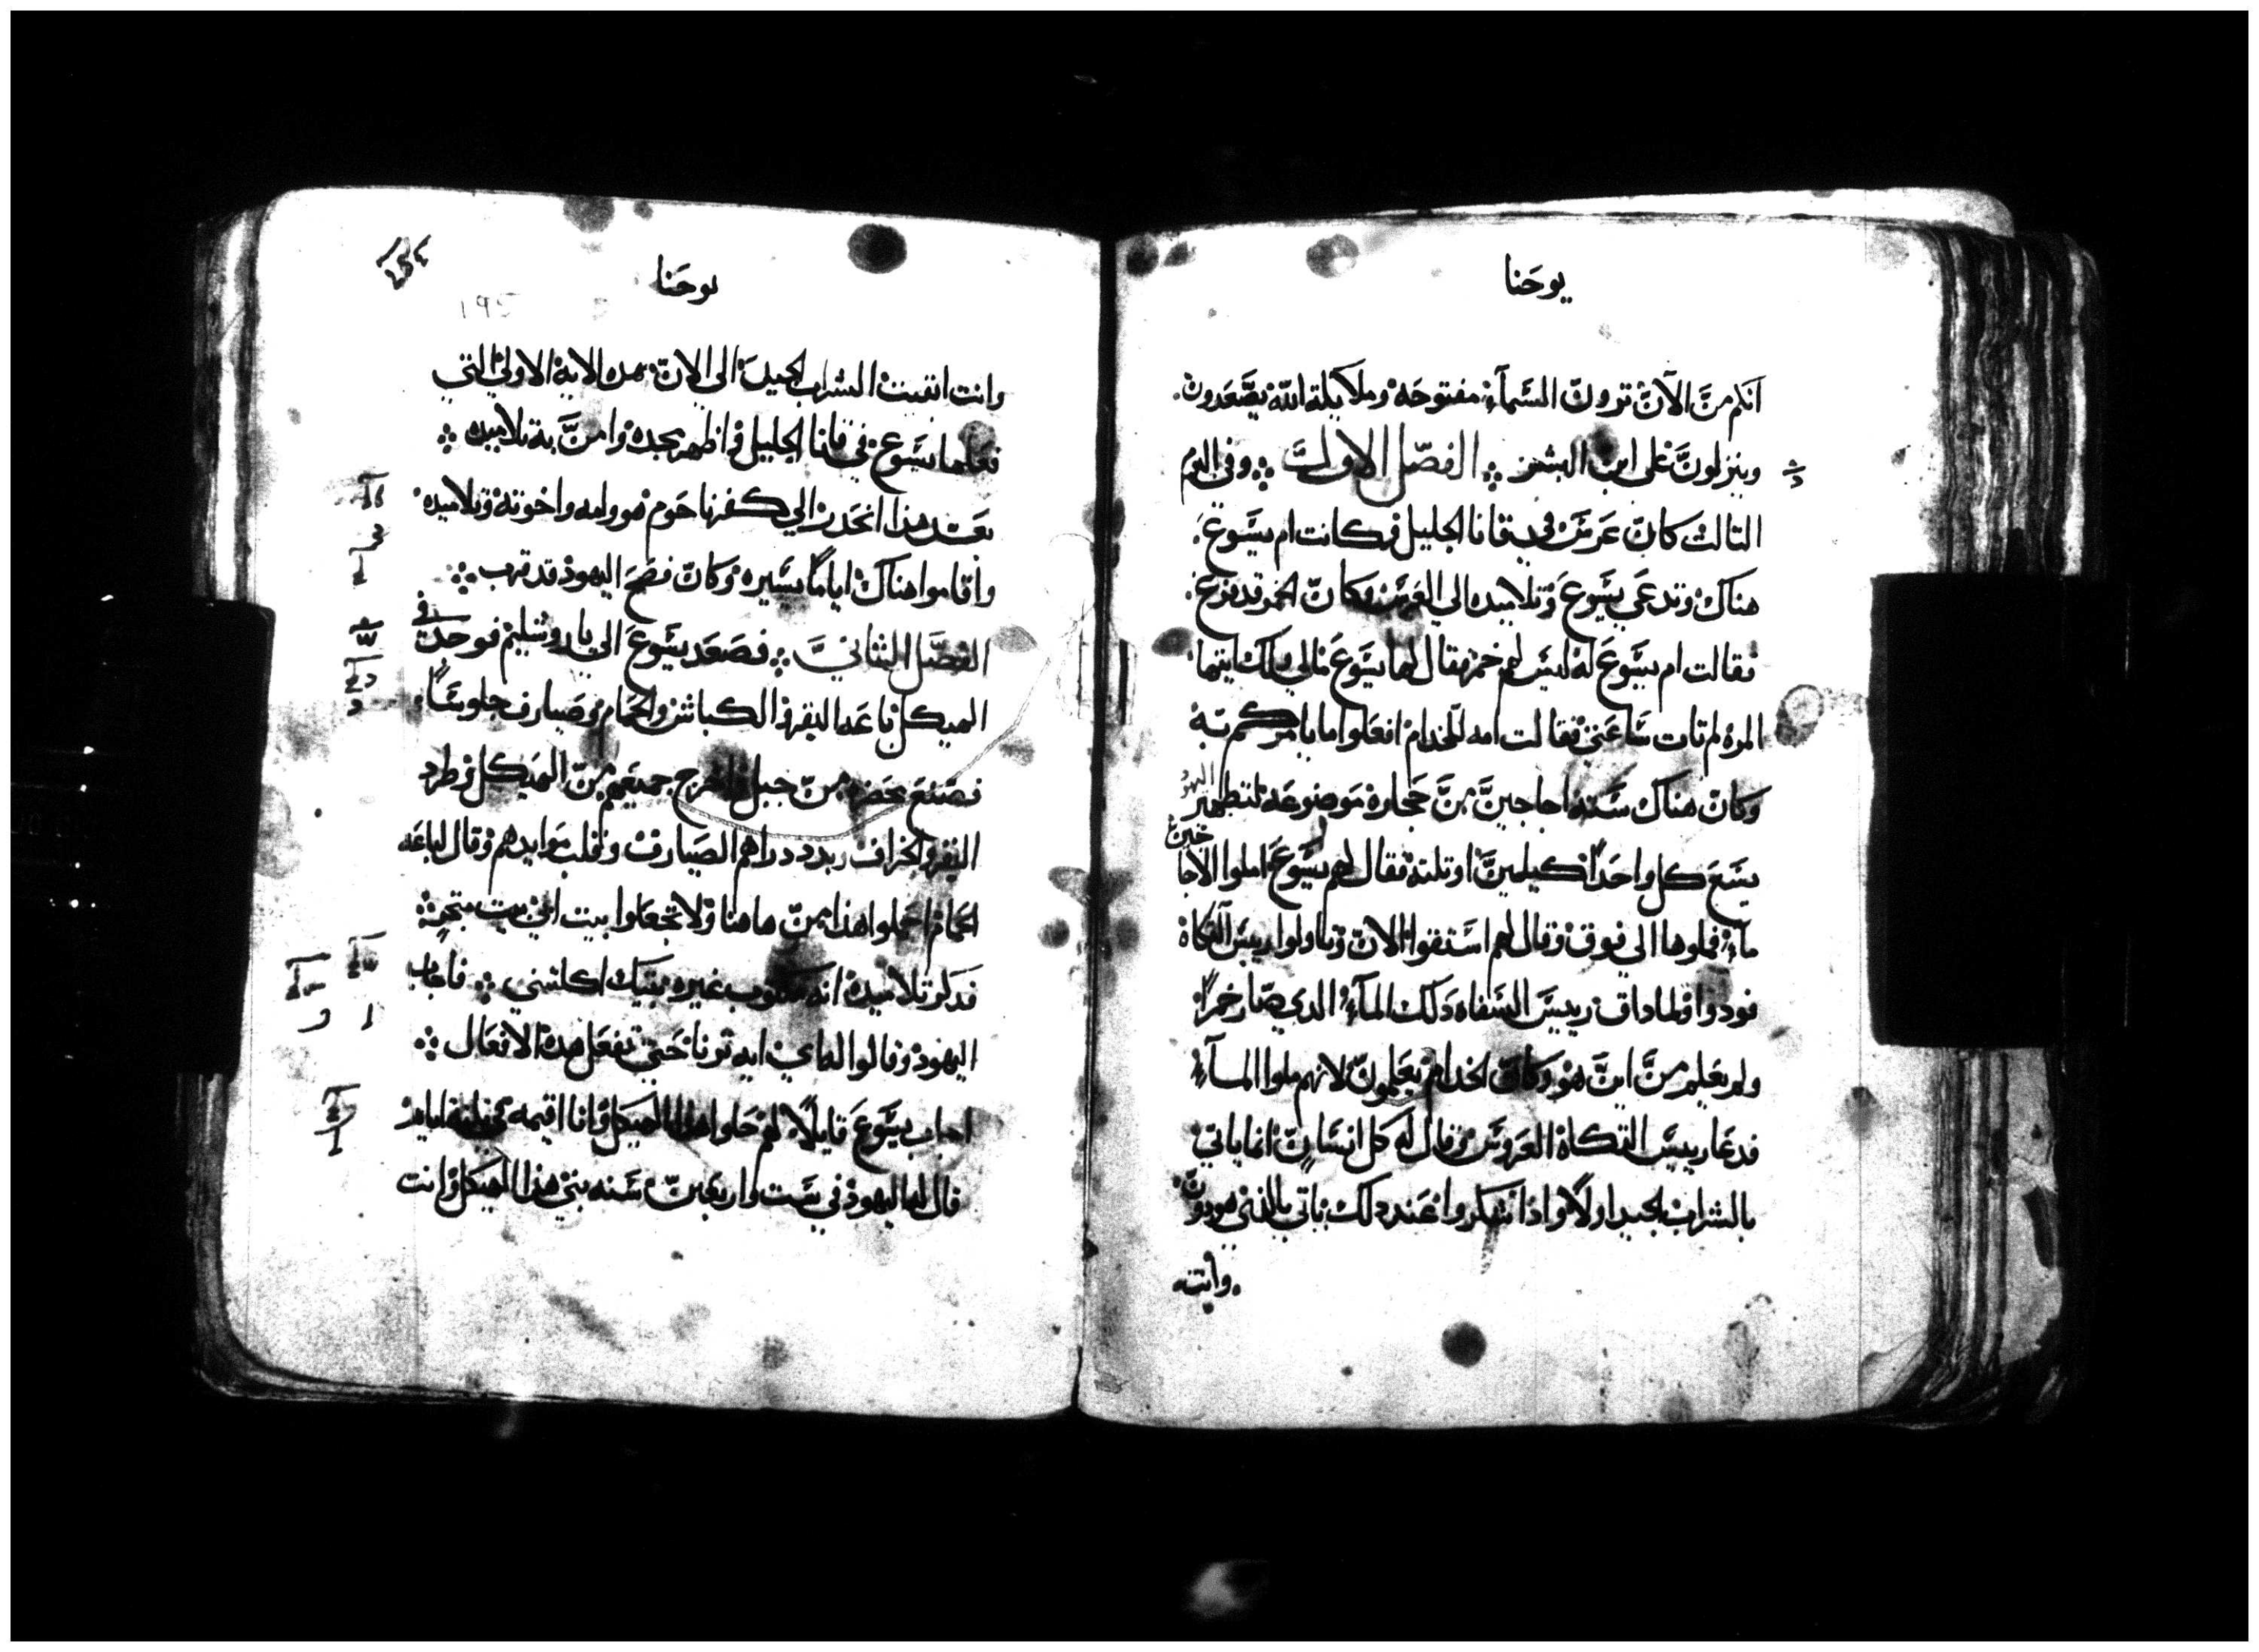 يوحَنا
انكم منَ الآنَ ترون السَمآء مفتوحَة وملايكة الله يصَعَدون
وينزلونَ على ابن البشر الفصَل الاولَ وفي اليوم
التالت كانَ عَرسَ في قانا الجليل وكانت ام يسَوعَ
هناك ودعَي يسَوعَ وتلاميده الي العَرسَ وكانَ الخمر قد فرغ
فقالت ام يسَوعَ له ليسَ لهم خمر فقال لها يسَوعَ مالي ولك ايتها
المره لم تات سَاعَتي فقالت امه للخدام افعَلوا ما يامركم به
وكانَ هناك سَته اجاجينَ منَ حَجاره موضوعَه لتطهير اليهود
يسَعَ كل واحَدًا كيلينَ اوتلته فقال لهم يسَوعَ املوا الاجاجين
مآء فملوها الي فوق وقال لهم اسَتقوا الانَ وناولوا رييسَ التكاه
فودوا ولما داق رييسَ السَقاه دَلك المآء الدي صَار خمرًا
ولم يعَلم منَ اينَ هو وكانَ الخدام يعَلمونَ لانهم ملوا المآء
فدعَا رييسَ التكاه العَروسَ وقال له كل انسَانَ انما ياتي
بالشراب الجيد اولاً واذا سَكروا عَند دلك ياتي بالدني هو دون
وانت
يوحَنا
195
وانت ابقيت الشراب الجيد الي الانَ هده الايه الاولي التي
فعَلها يسَوعَ في قانا الجليل واظهر مجده وامنَ به تلاميده
بعَد هذا انحَدر الي كفرناحَوم هو وامه واخوته وتلاميده
واقاموا هناك اياماً يسَيره وكانَ فصَحَ اليهود قد قرب
الفصَل الثانيَ فصَعَد يسَوعَ الي ياروشليم فوجد في
الهيكل باعَه البقر والكباش والحَمام وصَيارف جلوسَاً
فصَنعَ مخصَره منَ حبل واخرج جميعَهم منَ الهيكل وطرد
البقر والخراف وبدد دراهم الصَيارف وقلب موايدهم وقال لباعَه
الحَمام احَملوا هذا منَ هاهنا ولا تجعَلوا بيت ابي بيت متجر
فدكر تلاميده انه مكتوب غيره بيتك اكلتني فاجاب
اليهود وقالوا له اي ايه ترنا حَتي تفعَل هده الافعَال
اجاب يسَوعَ قايلاً لهم حَلوا هذا الهيكل وانا اقيمه في تلته ايام
قال له اليهود في سَت واربعَينَ سَنه بني هذا الهيكل وانت